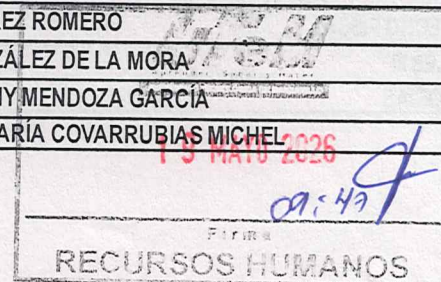 EZ ROMERO
ZÁLEZ DE LA MORA
NY MENDOZA GARCÍA
ARÍA COVARRUBIAS MICHEL
MAYO 2026
09:47
Firma
RECURSOS HUMANOS